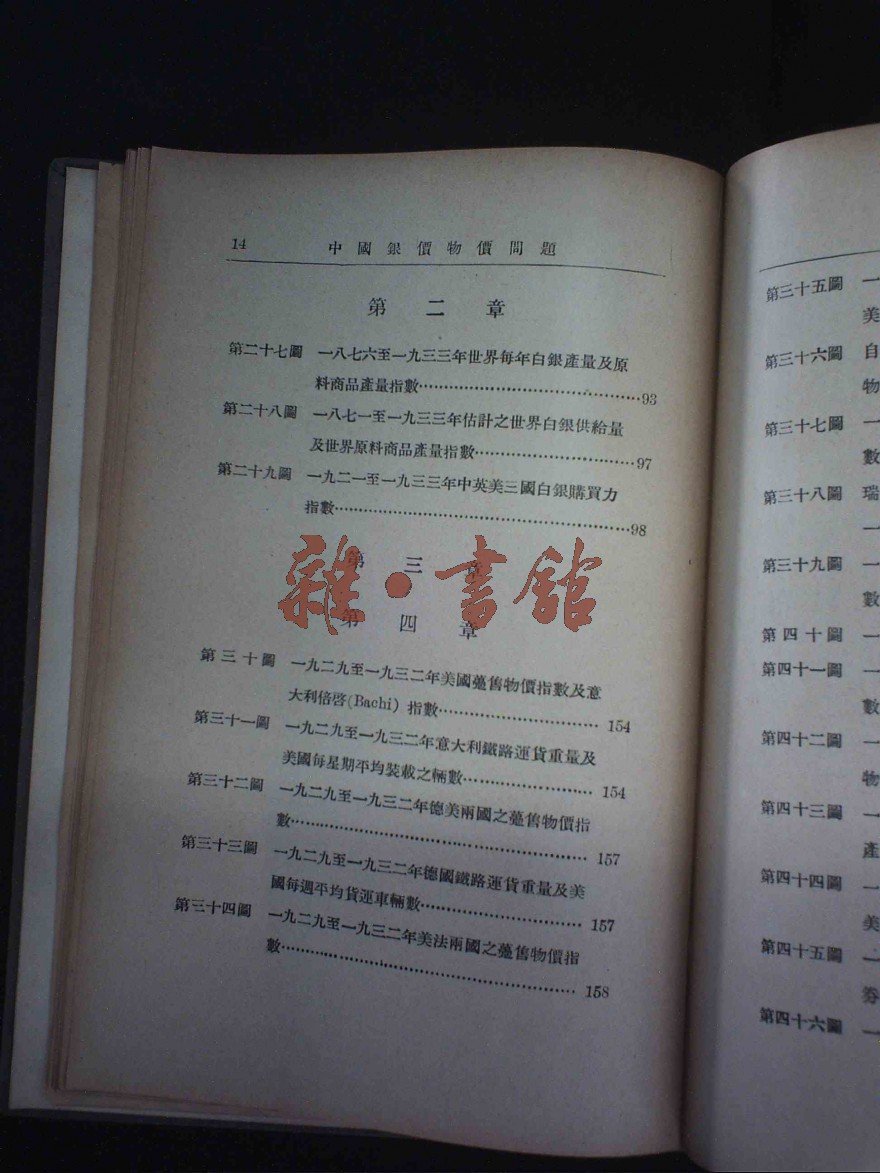 14 中國銀價物價問題
第二章
第二十七圖 一八七六至一九三三年世界每年白銀產量及原
料商品產量指數……93
第二十八圖 一八七一至一九三三年估計之世界白銀供給量
及世界原料商品產量指數……97
第二十九圖 一九二一至一九三三年中英美三國白銀購買力
指數……98
第三章
雜·書館
第四章
第三十圖 一九二九至一九三二年美國躉售物價指數及意
大利倍啓(Bachi)指數……154
第三十一圖 一九二九至一九三二年意大利鐵路運貨重量及
美國每星期平均裝載之輛數……154
第三十二圖 一九二九至一九三二年德美兩國之躉售物價指
數……157
第三十三圖 一九二九至一九三二年德國鐵路運貨重量及美
國每週平均貨運車輛數……157
第三十四圖 一九二九至一九三二年美法兩國之躉售物價指
數……158
第三十五圖 一
美
第三十六圖 自
物
第三十七圖 一
數
第三十八圖 瑞
一
第三十九圖 一
數
第四十圖 一
第四十一圖 一
數
第四十二圖 一
物
第四十三圖 一
產
第四十四圖 一
美
第四十五圖 一
券
第四十六圖 一